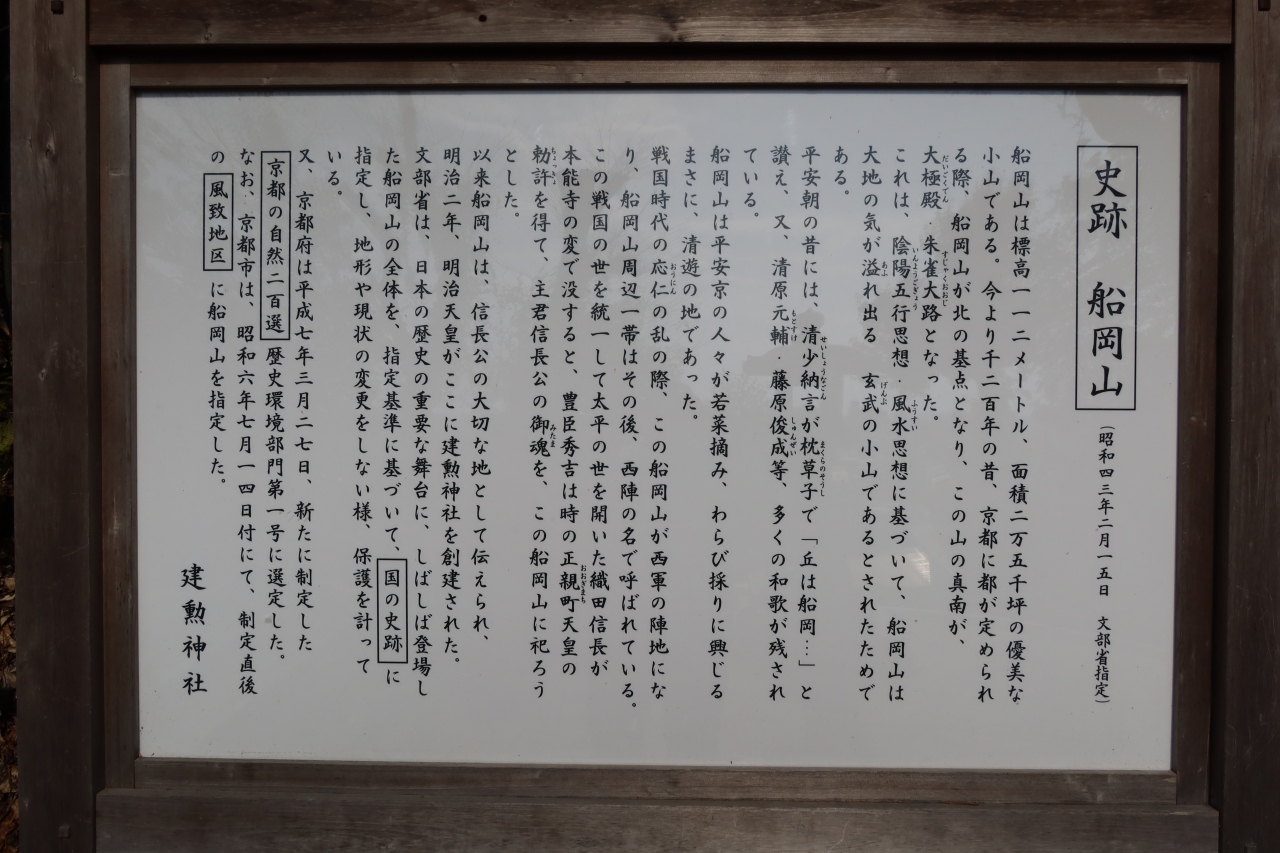 史跡 船岡山 (昭和四三年二月一五日 文部省指定)
船岡山は標高一一二メートル、面積二万五千坪の優美な
小山である。今より千二百年の昔、京都に都が定められ
る際、船岡山が北の基点となり、この山の真南が、
大極殿・朱雀大路となった。
だいごくでん すじゃくおおじ
これは、陰陽五行思想・風水思想に基づいて、船岡山は
いんようごぎょう ふうすい
大地の気が溢れ出る 玄武の小山であるとされたためで
あふ げんぶ
ある。
平安朝の昔には、清少納言が枕草子で「丘は船岡…」と
せいしょうなごん まくらのそうし
讃え、又、清原元輔・藤原俊成等、多くの和歌が残され
もとすけ しゅんぜい
ている。
船岡山は平安京の人々が若菜摘み、わらび採りに興じる
まさに、清遊の地であった。
戦国時代の応仁の乱の際、この船岡山が西軍の陣地にな
おうにん
り、船岡山周辺一帯はその後、西陣の名で呼ばれている。
この戦国の世を統一して太平の世を開いた織田信長が
本能寺の変で没すると、豊臣秀吉は時の正親町天皇の
おおぎまち
勅許を得て、主君信長公の御魂を、この船岡山に祀ろう
ちょっきょ みたま
とした。
以来船岡山は、信長公の大切な地として伝えられ、
明治二年、明治天皇がここに建勲神社を創建された。
文部省は、日本の歴史の重要な舞台に、しばしば登場し
た船岡山の全体を、指定基準に基づいて、国の史跡に
指定し、地形や現状の変更をしない様、保護を計って
いる。
又、京都府は平成七年三月二七日、新たに制定した
京都の自然二百選 歴史環境部門第一号に選定した。
なお、京都市は、昭和六年七月一四日付にて、制定直後
の 風致地区 に船岡山を指定した。
建勲神社